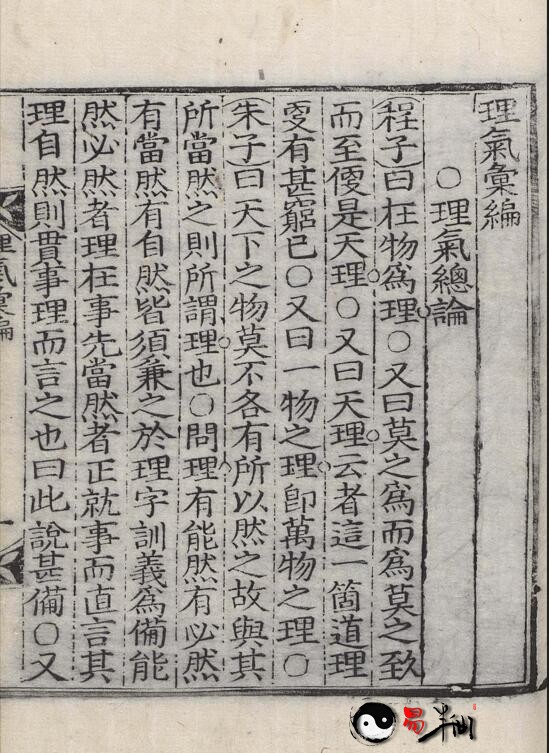 理氣彙編
○理氣總論
程子曰在物為理○又曰莫之為而為莫之致
而至便是天理○又曰天理云者這一箇道理
更有甚窮已○又曰一物之理即萬物之理○
朱子曰天下之物莫不各有所以然之故與其
所當然之則所謂理也○問理有能然有必然
有當然有自然皆須兼之於理字訓義為備能
然必然者理在事先當然者正就事而直言其
理自然則貫事理而言之也曰此說甚備○又
理氣彙編
一
易半仙